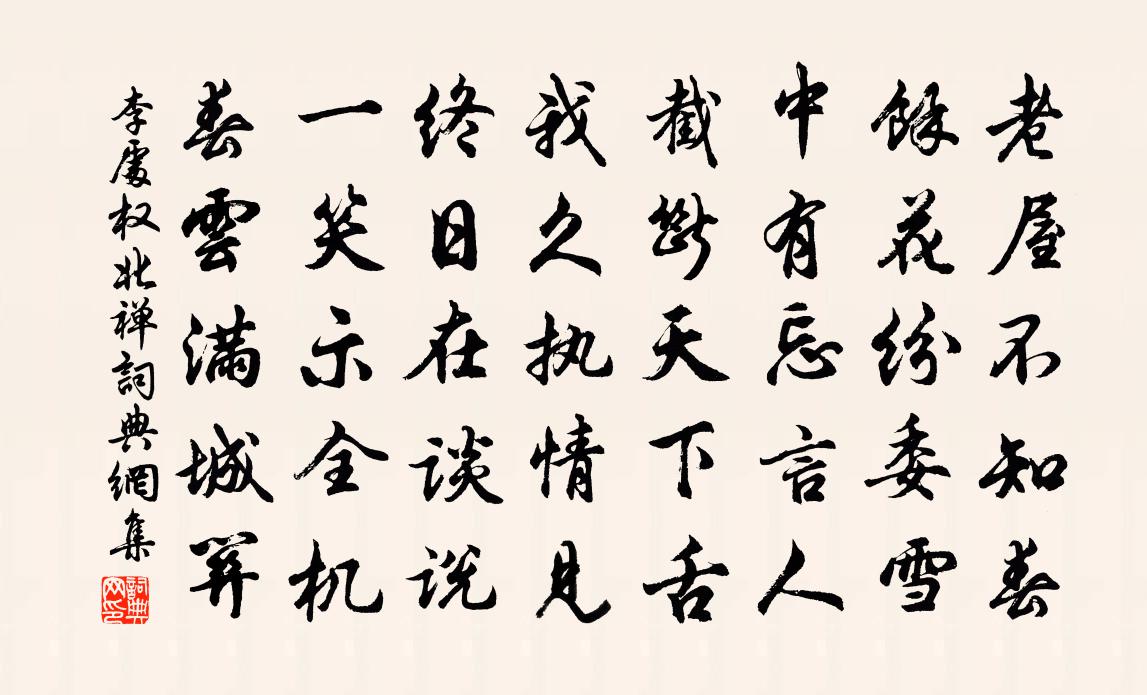 老屋不知春
餘花纷委雪
中有忘言人
截斷天下舌
我久执情见
终日在谈说
一笑示全机
春雲滿城
李處权北禅詞典網集
詞典網印